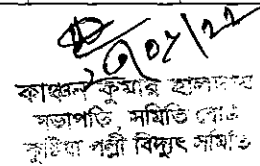 কাঞ্চন কুমার হালদার
সভাপতি, সমিতি বোর্ড
কুষ্টিয়া পল্লী বিদ্যুৎ সমিতি